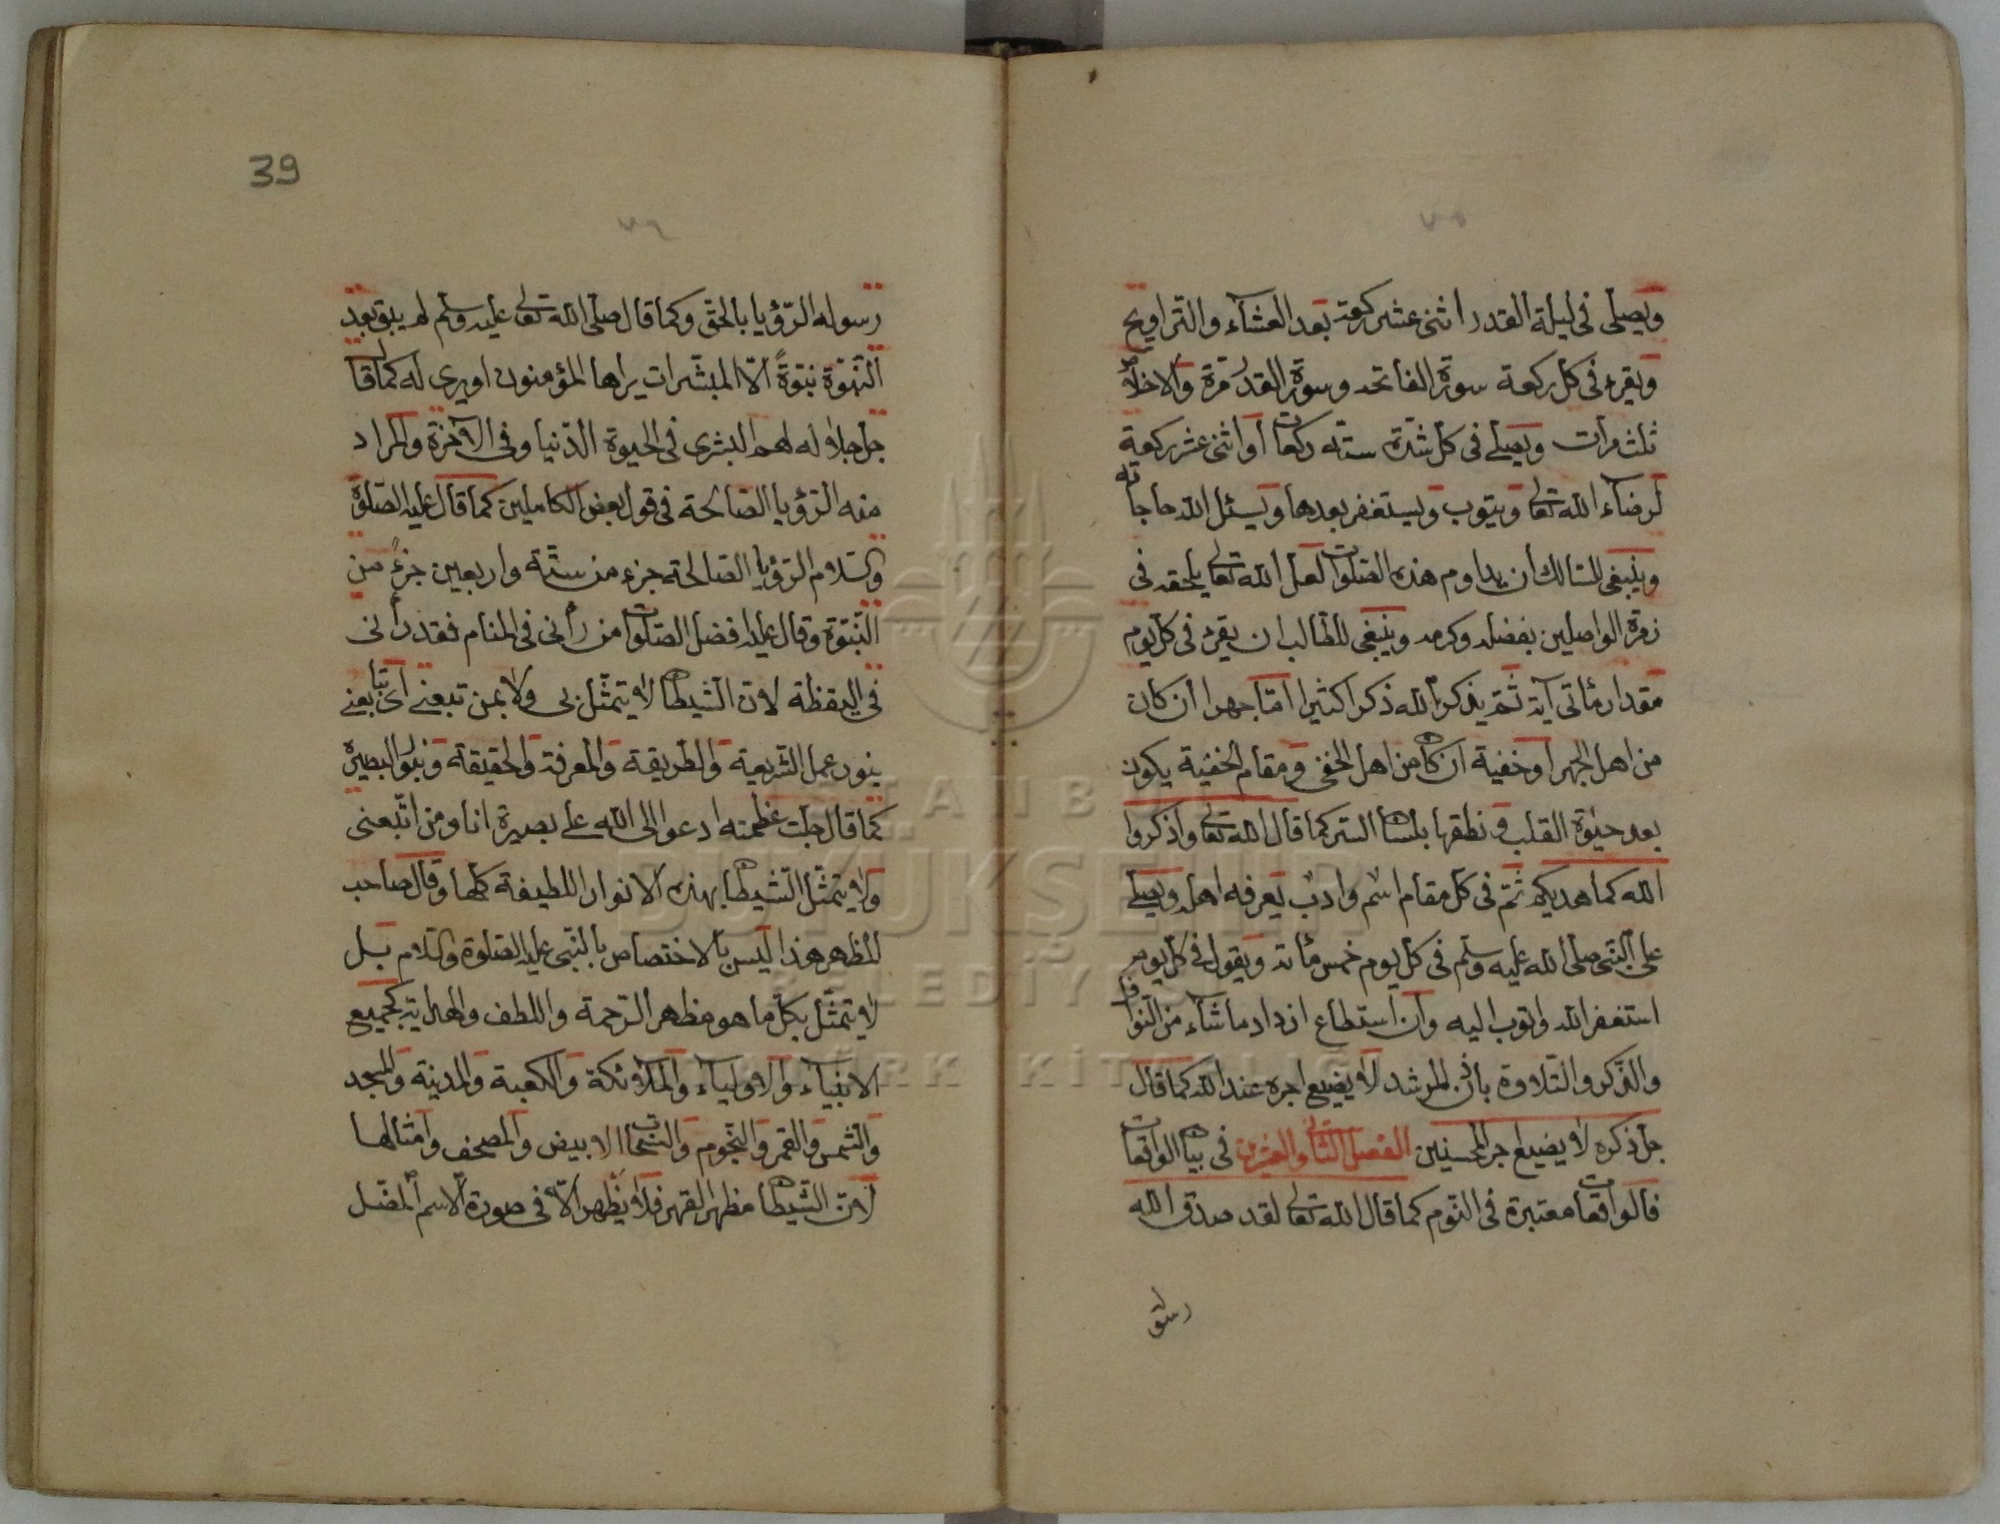 ٧٥
ويصلى فى ليلة القدر اثنى عشر ركعة بعد العشاء والتراويح
ويقرء فى كل ركعة سورة الفاتحه وسورة القدر مرة والاخلاص
ثلث مرات ويصلى فى كل شدة ستة ركعات أو اثنى عشر ركعة
لرضاء الله تعالى ويتوب ويستغفر بعدها ويسئل الله حاجاته
وينبغى للسالك أن يداوم هذه الصلوات لعل الله تعالى يلحقه فى
زمرة الواصلين بفضله وكرمه وينبغى للطالب ان يقرء فى كل يوم
مقدار مأتى آية ثم يذكر الله ذكرا كثيرا امّا جهرا أن كان
من اهل الجهر او خفية ان كان من اهل الخفى ومقام الخفية يكون
بعد حيوة القلب ونطقها بلسان السر كما قال الله تعالى واذكروا
الله كما هديكم ثم فى كل مقام اسم وادب يعرفه اهله ويصلى
على النبى صلى الله عليه وسلم فى كل يوم خمس مأته ويقول فى كل يوم
استغفر الله واتوب اليه وأن استطاع ازداد ما شاء من النوافل
والذكر والتلاوة باذن المرشد لا يضيع اجره عند الله كما قال
جل ذكره لا يضيع اجر المحسنين الفصل الثانى والعشرين فى بيان الواقعات
فالواقعات معتبرة فى النوم كما قال الله تعالى لقد صدق الله
رسوله
39
٧٦
رسوله الرؤيا بالحق وكما قال صلى الله تعالى عليه وسلم لم يبق بعد
النبوة نبوةً الّا المبشرات يراها المؤمنون او يرى له كما قال
جل جلاله لهم البشرى فى الحيوة الدنيا وفى الآخرة والمراد
منه الرؤيا الصالحة فى قول بعض الكاملين كما قال عليه الصلوة
والسلام الرؤيا الصالحة جزء من ستة واربعين جزءً من
النبوة وقال عليه افضل الصلوات من رأنى فى المنام فقد رأنى
فى اليقظة لان الشيطان لا يتمثل بى ولا بمن تبعنى اى تابعنى
بنور عمل الشريعة والطريقة والمعرفة والحقيقة وبنور البصيرة
كما قال جلت عظمته ادعوا الى الله على بصيرة انا ومن اتبعنى
ولا يتمثل الشيطان بهذه الانوار اللطيفة كلها وقال صاحب
المظهر هذا ليس بالاختصاص بالنبى عليه الصلوة والسلام بل
لا يتمثل بكل ما هو مظهر الرحمة واللطف والهداية كجميع
الانبياء والاولياء والملائكة والكعبة والمدينة والمسجد
والشمس والقمر والنجوم والسحاب الابيض والمصحف وامثالها
لان الشيطان مظهر القهر فلا يظهر الّا فى صورة الاسم المضل
İSTANBUL
BÜYÜKŞEHİR
BELEDİYESİ
ATATÜRK KİTAPLIĞI